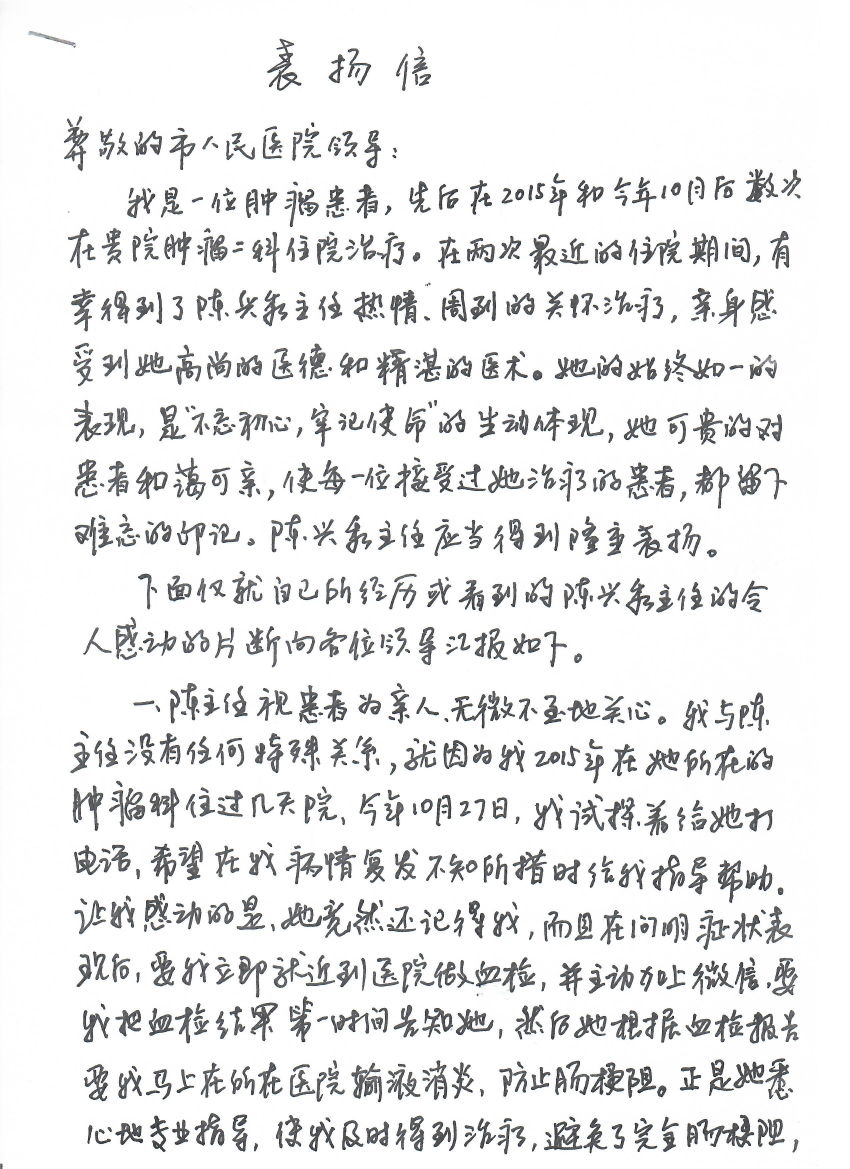 表扬信
尊敬的市人民医院领导：
我是一位肿瘤患者，先后在2015年和今年10月后数次
在贵院肿瘤二科住院治疗。在两次最近的住院期间，有
幸得到了陈兴和主任热情、周到的关怀治疗，亲身感
受到她高尚的医德和精湛的医术。她的始终如一的
表现，是“不忘初心，牢记使命”的生动体现，她可贵的对
患者和蔼可亲，使每一位接受过她治疗的患者，都留下
难忘的印记。陈兴和主任应当得到隆重表扬。
下面仅就自己所经历或看到的陈兴和主任的令
人感动的片断向各位领导汇报如下。
一、陈主任视患者为亲人、无微不至地关心。我与陈
主任没有任何特殊关系，就因为我2015年在她所在的
肿瘤科住过几天院，今年10月27日，我试探着给她打
电话，希望在我病情复发不知所措时给我指导帮助。
让我感动的是，她竟然还记得我，而且在问明症状表
现后，要我立即就近到医院做血检，并主动加上微信，要
我把血检结果第一时间告知她，然后她根据血检报告
要我马上在所在医院输液消炎，防止肠梗阻。正是她悉
心地专业指导，使我及时得到治疗，避免了完全肠梗阻，